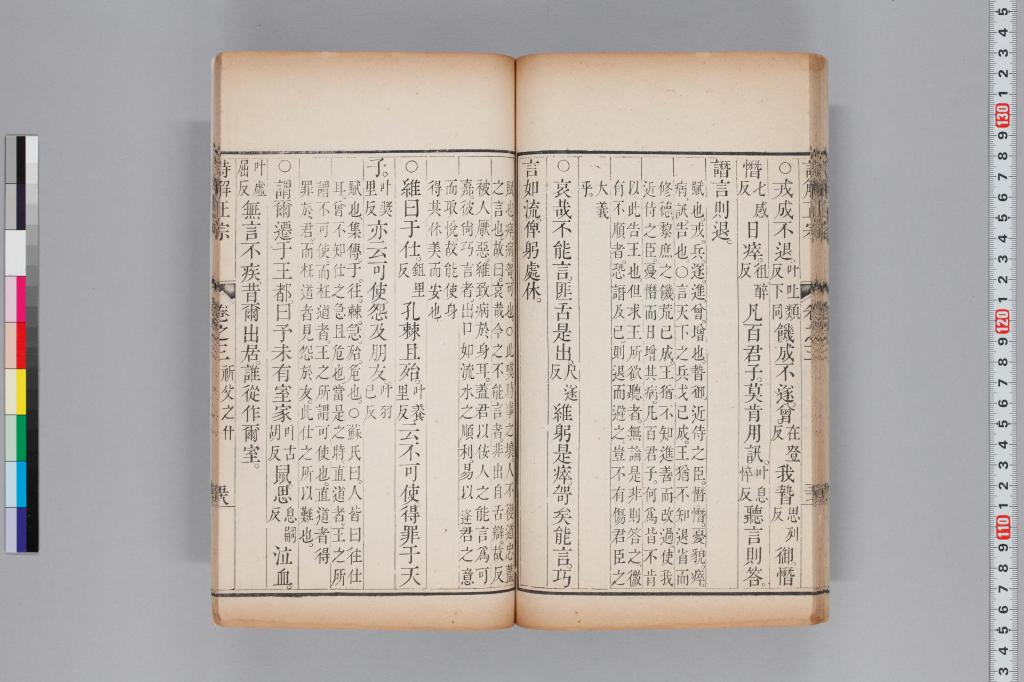 ○戎成不退叶吐類反下同饑成不遂曾在登反我暬思列反御憯
憯七感反日瘁徂醉反凡百君子莫肯用訊叶息悴反聽言則答
譖言則退
賦也戎兵遂進曾增也暬御近侍之臣憯憯憂貌瘁
病訊告也○言天下之兵戈已成王猶不知退省而
修德黎庶之饑荒已成王猶不知進善而改過使我
近侍之臣憂憯而日增其病凡百君子何爲皆不肯
以此告王也但求王所欲聽者無論是非則答之微
有不順者恐譖及己則退而避之豈不有傷君臣之
大義
乎
○哀哉不能言匪舌是出尺遂反維躬是瘁哿矣能言巧
言如流俾躬處休
之言也故曰哀哉今之不能言者非出自舌辯故反
被人厭惡維致病於身耳蓋君以佞人之能言爲可
嘉彼尚巧言者出口如流水之順利易以逢君之意
而取悅故能使身
得其休美而安也
○維曰于仕鉏里反孔棘且殆叶養里反云不可使得罪于天
子叶奬里反亦云可使怨及朋友叶羽已反
賦也集傳于往棘急殆危也○蘇氏曰人皆曰往仕
耳曾不知仕之急且危也當是之時直道者王之所
謂不可使而枉道者王之所謂可使也直道者得
罪於君而枉道者見怨於友此仕之所以難也
○謂爾遷于王都曰予未有室家叶古胡反鼠思息嗣反泣血
叶虛屈反無言不疾昔爾出居誰從作爾室
詩解正宗 卷之三 祈父之什